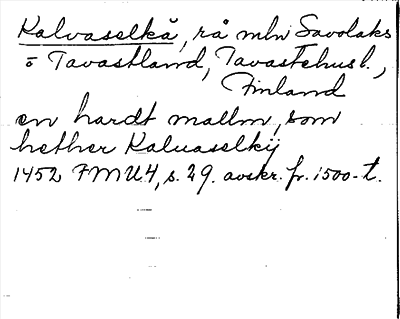 Kalvaselkä, rå mln Savolaks
o Tavastland, Tavastehus l.,
Finland
en hardt mallm, som
hether Kaluaselkij
1452 FMU 4, s. 29. avskr. fr. 1500-t.